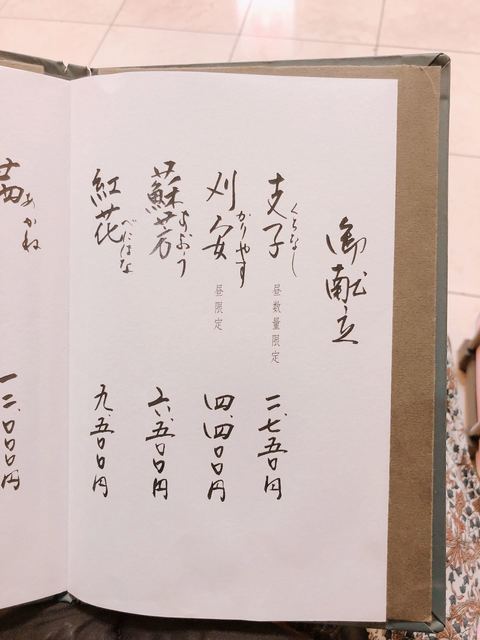 御献立
支子 くちなし 昼数量限定 二、七五〇円
刈安 かりやす 昼限定 四、四〇〇円
蘇芳 すおう 六、五〇〇円
紅花 べにばな 九、五〇〇円
茜 あかね 一二、〇〇〇円